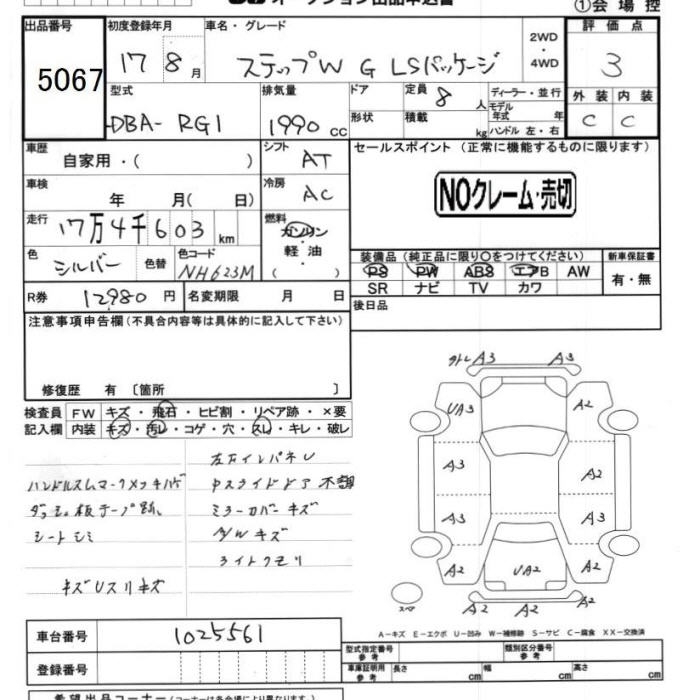 オークション出品申込書
①会場控
出品番号 5067
初度登録年月 17 8 月
車名・グレード ステップW G LSパッケージ
2WD・4WD
評価点 3
型式 DBA-RG1
排気量 1990 cc
ドア 形状
定員 8 人
積載 kg
ディーラー・並行
モデル年式 年
ハンドル 左・右
外装 C 内装 C
車歴 自家用・( )
シフト AT
セールスポイント (正常に機能するものに限ります)
車検 年 月( 日)
冷房 AC
NOクレーム・売切
走行 17万4千603 km
燃料 ガソリン・軽油 ( )
色 シルバー 色替
色コード NH623M
装備品 (純正品に限り○をつけてください)
新車保証書
PS PW ABS エアB AW
SR ナビ TV カワ
有・無
R券 12980 円
名変期限 月 日
後日品
注意事項申告欄(不具合内容等は具体的に記入して下さい)
修復歴 有 〔箇所 〕
検査員 FW キズ・飛石・ヒビ割・リペア跡・×要
記入欄 内装 キズ・汚レ・コゲ・穴・スレ・キレ・破レ
左右インパネし
ハンドルスレマークメッキハゲ
中スライドドア不調
ダッシュ板テープ跡、
ミラーカバーキズ
シートシミ
A/Wキズ
ライトクモリ
キズUスリキズ
外レ A3 A3
UA3 A2
A3 A2
A3 A2
A2 UA2 A2
スペア
A2 A2
A−キズ E−エクボ U−凹み W−補修跡 S−サビ C−腐食 XX−交換済
車台番号 1025561
型式指定番号 参考
類別区分番号 参考
登録番号
車庫証明用 参考 長さ cm 幅 cm 高さ cm
希望出品コーナー(コーナーは各会場により異なります)